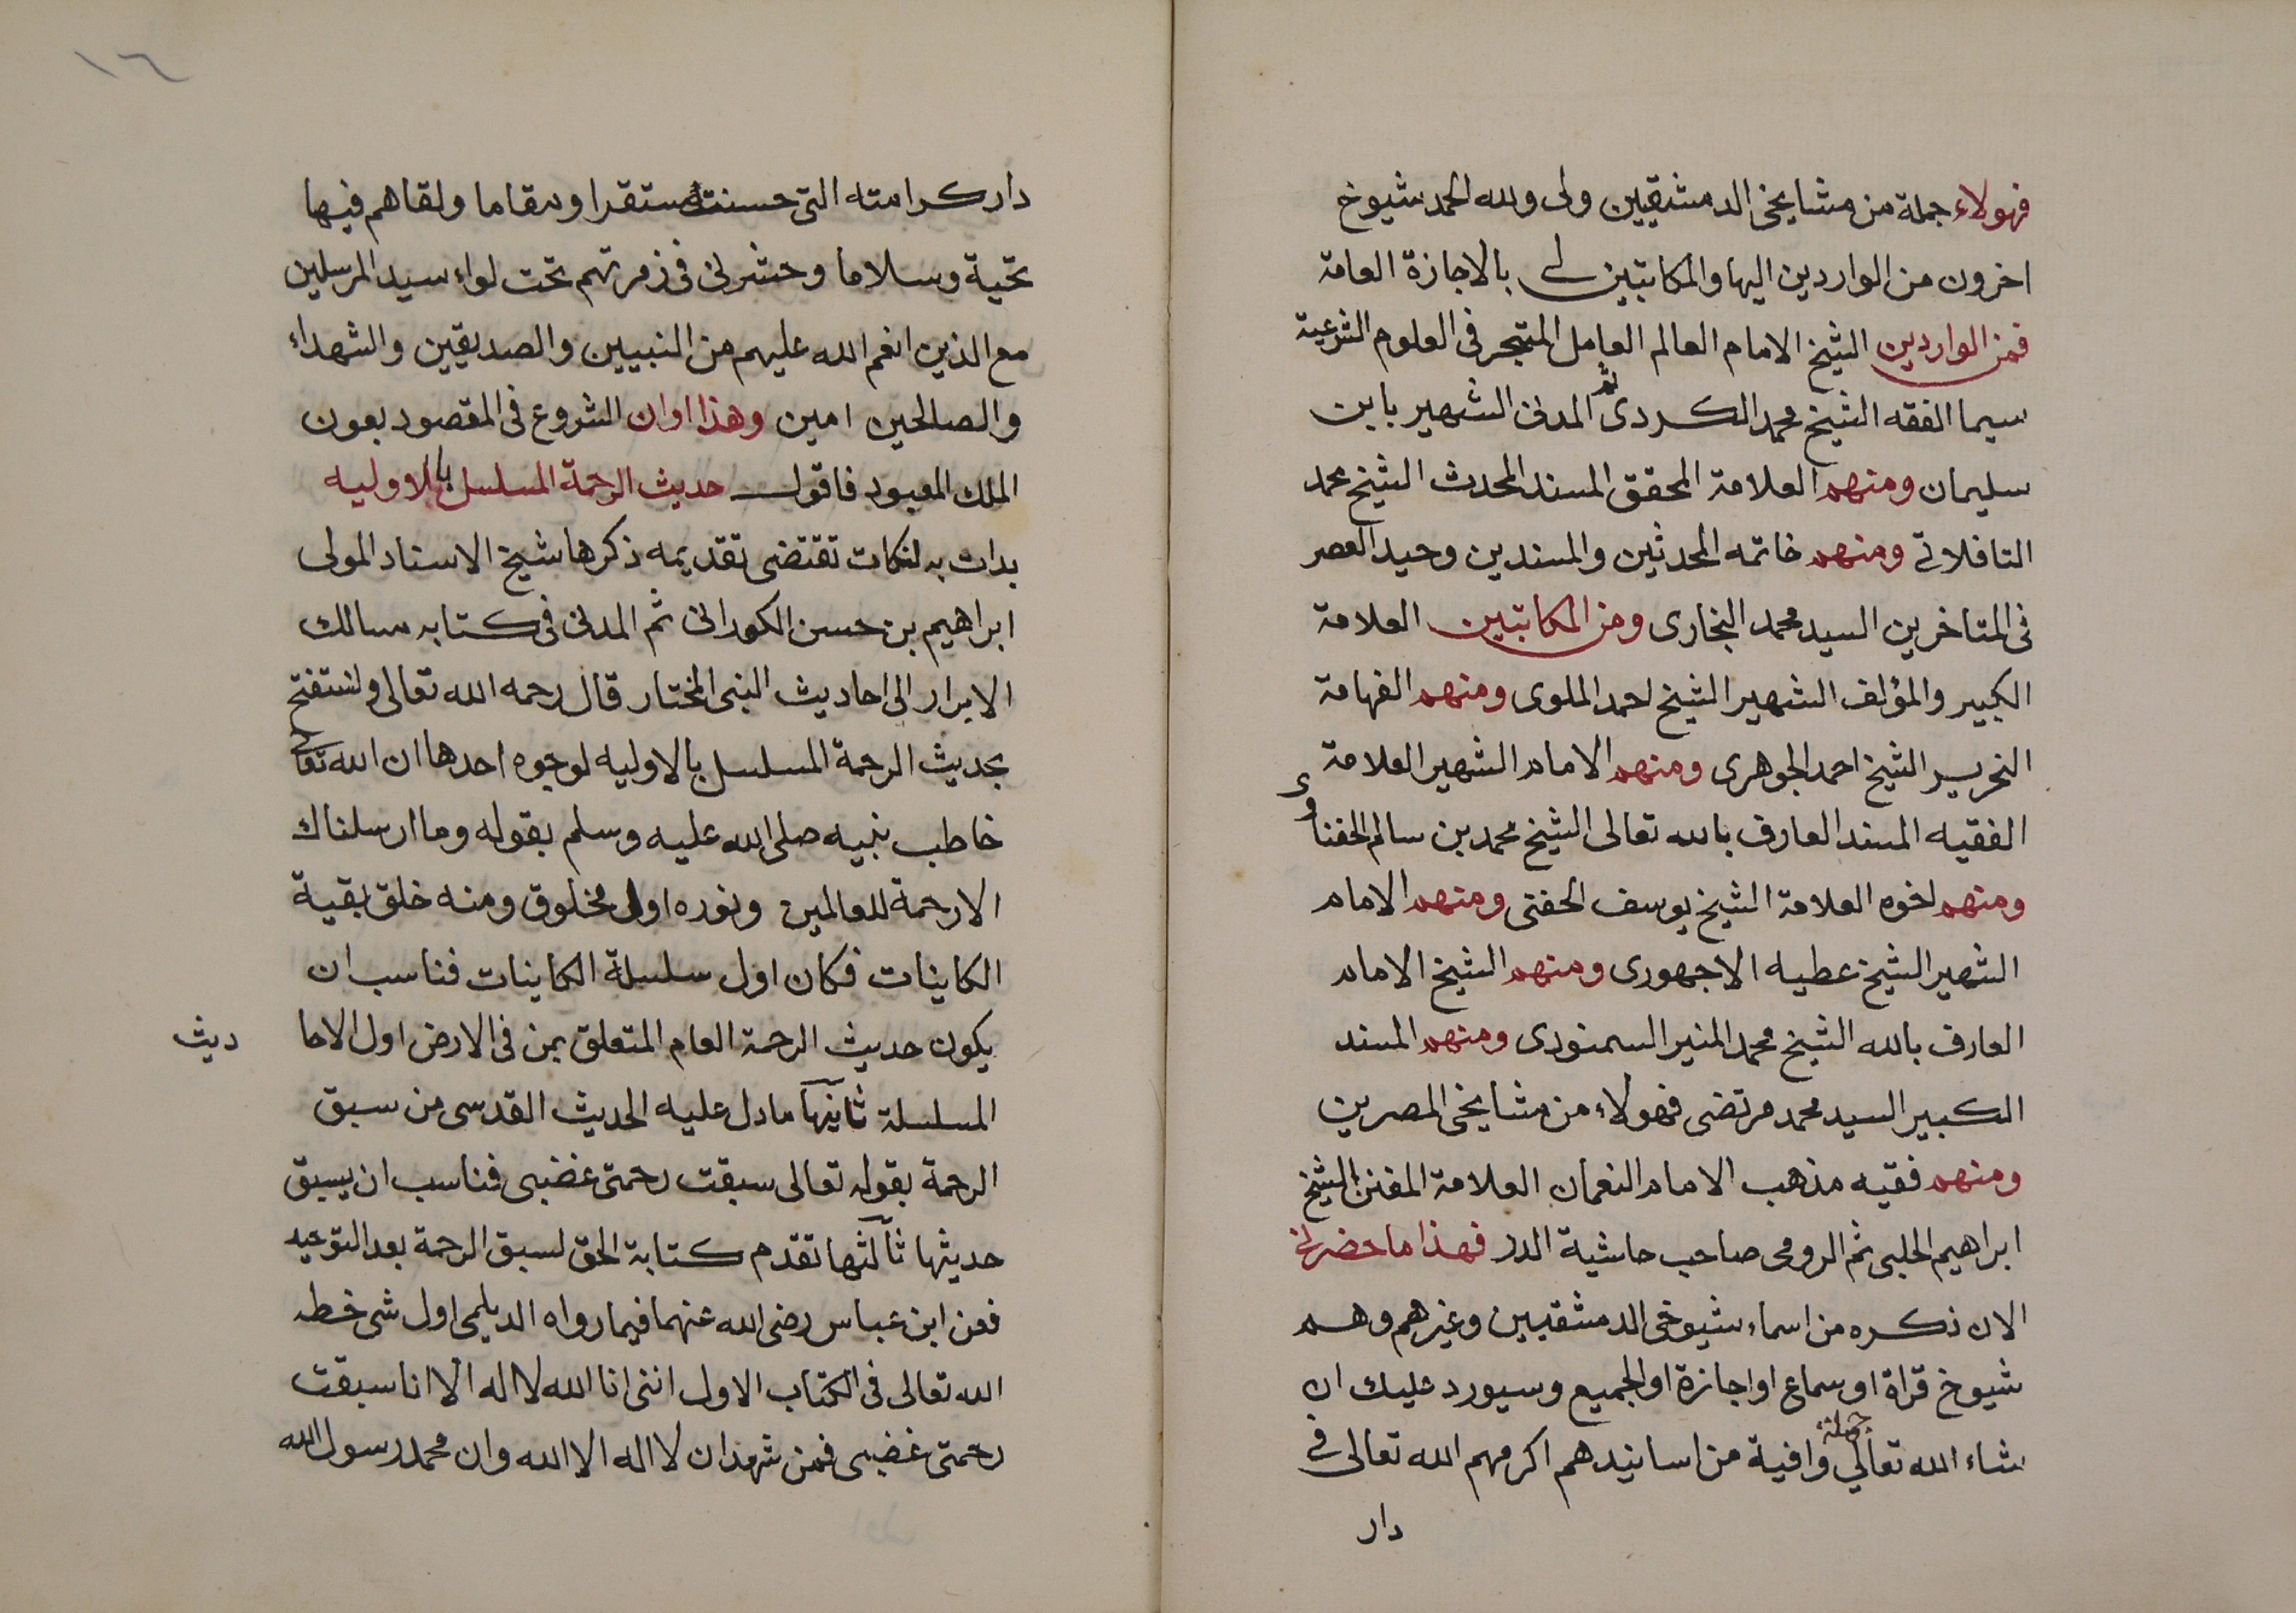 فهولاء جملة من مشايخي الدمشقيين ولى ولله الحمد شيوخ
اخرون من الواردين اليها والمكاتبين لى بالاجازة العامة
فمن الواردين الشيخ الامام العالم العامل المتبحر فى العلوم الشرعية
سيما الفقه الشيخ محمد الكردى ثم المدنى الشهير بابن
سليمان ومنهم العلامة المحقق المسند المحدث الشيخ محمد
التافلاتى ومنهم خاتمه المحدثين والمسندين وحيد العصر
فى المتاخرين السيد محمد البخارى ومن المكاتبين العلامة
الكبير والمؤلف الشهير الشيخ احمد الملوى ومنهم الفهامة
النحرير الشيخ احمد الجوهرى ومنهم الامام الشهير العلامة
الفقيه المسند العارف بالله تعالى الشيخ محمد بن سالم الحفناوى
ومنهم اخوه العلامة الشيخ يوسف الحفنى ومنهم الامام
الشهير الشيخ عطيه الاجهورى ومنهم الشيخ الامام
العارف بالله الشيخ محمد المنير السمنودى ومنهم المسند
الكبير السيد محمد مرتضى فهولاء من مشايخى المصرين
ومنهم فقيه مذهب الامام النعمان العلامة المفنن الشيخ
ابراهيم الحلبى ثم الرومى صاحب حاشية الدر فهذا ما حضرنى
الان ذكره من اسماء شيوخى الدمشقيين وغيرهم وهم
شيوخ قراة او سماع او اجازة او الجميع وسيورد عليك ان
شاء الله تعالى جملة وافية من اسانيدهم اكرمهم الله تعالى فى
دار
١٦
دار كرامته التى حسنت مستقرا ومقاما ولقاهم فيها
تحية وسلاما وحشرنى فى زمرتهم تحت لواء سيد المرسلين
مع الذين انعم الله عليهم من النبيين والصديقين والشهداء
والصالحين امين وهذا اوان الشروع فى المقصود بعون
الملك المعبود فاقول حديث الرحمة المسلسل بالاوليه
بدات به لنكات تقتضى تقديمه ذكرها شيخ الاستاد المولى
ابراهيم بن حسن الكورانى ثم المدنى فى كتابه مسالك
الابرار الى احاديث النبى المختار قال رحمه الله تعالى ولنستفتح
بحديث الرحمة المسلسل بالاوليه لوجوه احدها ان الله تعالى
خاطب نبيه صلى الله عليه وسلم بقوله وما ارسلناك
الا رحمة للعالمين ونوره اول مخلوق ومنه خلق بقية
الكاينات فكان اول سلسلة الكاينات فناسب ان
يكون حديث الرحمة العام المتعلق بمن فى الارض اول الاحا ديث
المسلسلة ثانيها ما دل عليه الحديث القدسى من سبق
الرحمة بقوله تعالى سبقت رحمتى غضبى فناسب ان يسبق
حديثها ثالثها تقدم كتابة الحق لسبق الرحمة بعد التوحيد
فعن ابن عباس رضى الله عنهما فيما رواه الديلمى اول شى خطه
الله تعالى فى الكتاب الاول اننى انا الله لا اله الا انا سبقت
رحمتى غضبى فمن شهد ان لا اله الا الله وان محمد رسول الله